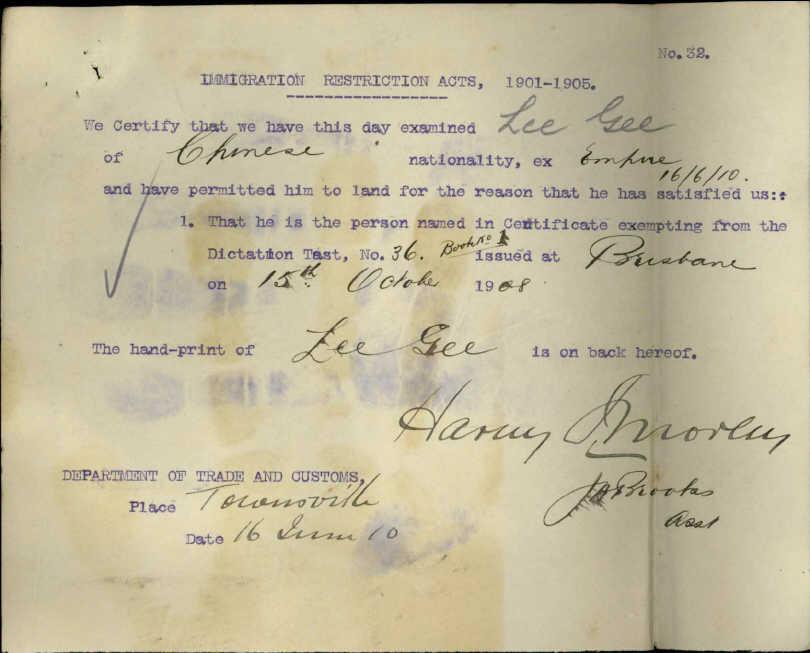 No. 32.
IMMIGRATION RESTRICTION ACTS, 1901-1905.
We Certify that we have this day examined Lee Gee
of Chinese nationality, ex Empire
16/6/10.
and have permitted him to land for the reason that he has satisfied us:-
1. That he is the person named in Centificate exempting from the
Dictation Tast, No. 36. Book No 1 issued at Brisbane
on 15th October 1908
The hand-print of Lee Gee is on back hereof.
Harry
DEPARTMENT OF TRADE AND CUSTOMS,
Place Townsville
Brooks
Asst
Date 16 June 10